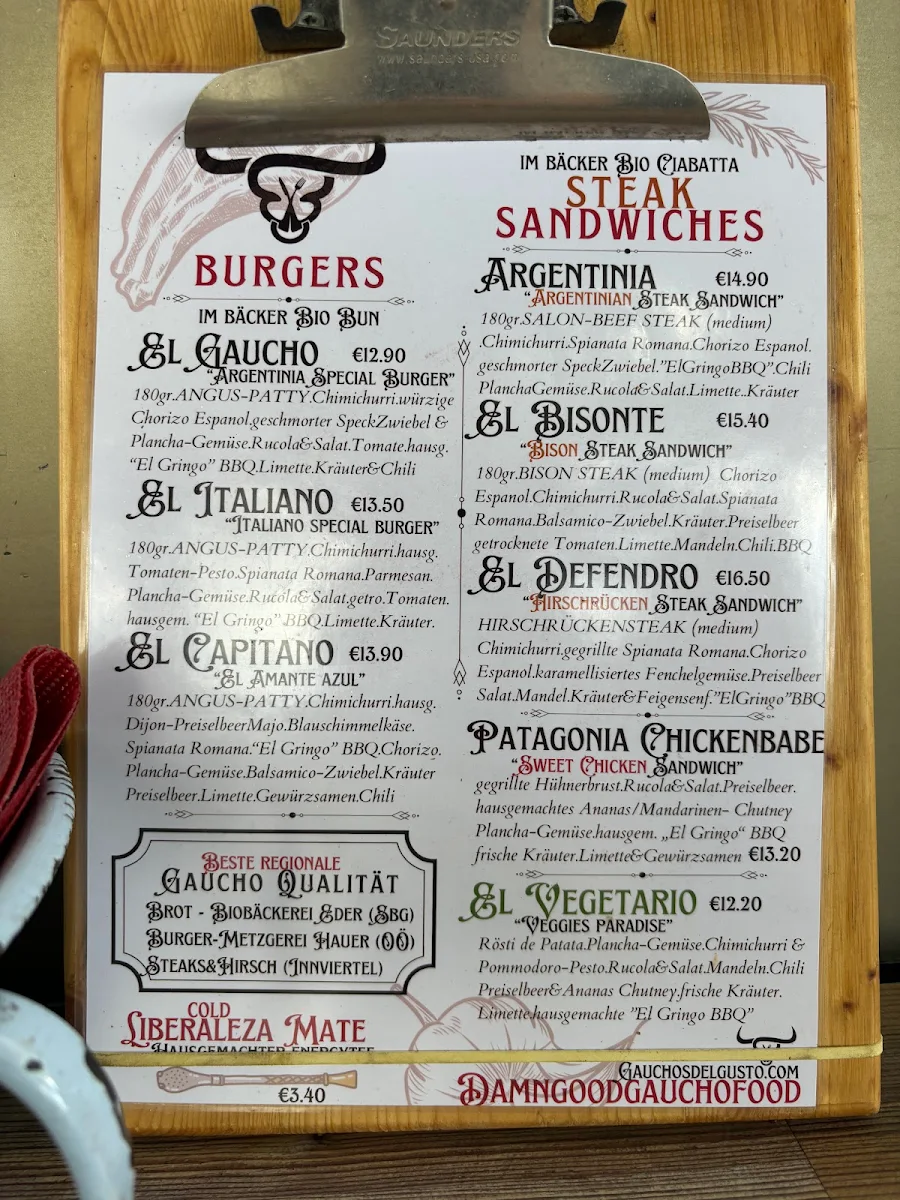 SAUNDERS
www.saunders-usa.com
BURGERS
IM BÄCKER BIO BUN
EL GAUCHO €12.90
"ARGENTINIA SPECIAL BURGER"
180gr.ANGUS-PATTY.Chimichurri.würzige
Chorizo Espanol.geschmorter SpeckZwiebel &
Plancha-Gemüse.Rucola&Salat.Tomate.hausg.
"El Gringo" BBQ.Limette.Kräuter&Chili
EL ITALIANO €13.50
"ITALIANO SPECIAL BURGER"
180gr.ANGUS-PATTY.Chimichurri.hausg.
Tomaten-Pesto.Spianata Romana.Parmesan.
Plancha-Gemüse.Rucola&Salat.getro.Tomaten.
hausgem. "El Gringo" BBQ.Limette.Kräuter.
EL CAPITANO €13.90
"EL AMANTE AZUL"
180gr.ANGUS-PATTY.Chimichurri.hausg.
Dijon-PreiselbeerMajo.Blauschimmelkäse.
Spianata Romana."El Gringo" BBQ.Chorizo.
Plancha-Gemüse.Balsamico-Zwiebel.Kräuter
Preiselbeer.Limette.Gewürzsamen.Chili
BESTE REGIONALE
GAUCHO QUALITÄT
BROT - BIOBÄCKEREI EDER (SBG)
BURGER-METZGEREI HAUER (OÖ)
STEAKS&HIRSCH (INNVIERTEL)
COLD
LIBERALEZA MATE
HAUSGEMACHTER ENERGYTEE
€3.40
IM BÄCKER BIO CIABATTA
STEAK
SANDWICHES
ARGENTINIA €14.90
"ARGENTINIAN STEAK SANDWICH"
180gr.SALON-BEEF STEAK (medium)
.Chimichurri.Spianata Romana.Chorizo Espanol.
geschmorter SpeckZwiebel."ElGringoBBQ".Chili
PlanchaGemüse.Rucola&Salat.Limette..Kräuter
EL BISONTE €15.40
"BISON STEAK SANDWICH"
180gr.BISON STEAK (medium) Chorizo
Espanol.Chimichurri.Rucola&Salat.Spianata
Romana.Balsamico-Zwiebel.Kräuter.Preiselbeer
getrocknete Tomaten.Limette.Mandeln.Chili.BBQ
EL DEFENDRO €16.50
"HIRSCHRÜCKEN STEAK SANDWICH"
HIRSCHRÜCKENSTEAK (medium)
Chimichurri.gegrillte Spianata Romana.Chorizo
Espanol.karamellisiertes Fenchelgemüse.Preiselbeer
Salat.Mandel.Kräuter&Feigensenf."ElGringo"BBQ
PATAGONIA CHICKENBABE
"SWEET CHICKEN SANDWICH"
gegrillte Hühnerbrust.Rucola&Salat.Preiselbeer.
hausgemachtes Ananas/Mandarinen- Chutney
Plancha-Gemüse.hausgem. „El Gringo“ BBQ
frische Kräuter.Limette&Gewürzsamen €13.20
EL VEGETARIO €12.20
"VEGGIES PARADISE"
Rösti de Patata.Plancha-Gemüse.Chimichurri &
Pommodoro-Pesto.Rucola&Salat.Mandeln.Chili
Preiselbeer&Ananas Chutney.frische Kräuter.
Limette.hausgemachte "El Gringo BBQ"
GAUCHOSDELGUSTO.COM
DAMNGOODGAUCHOFOOD